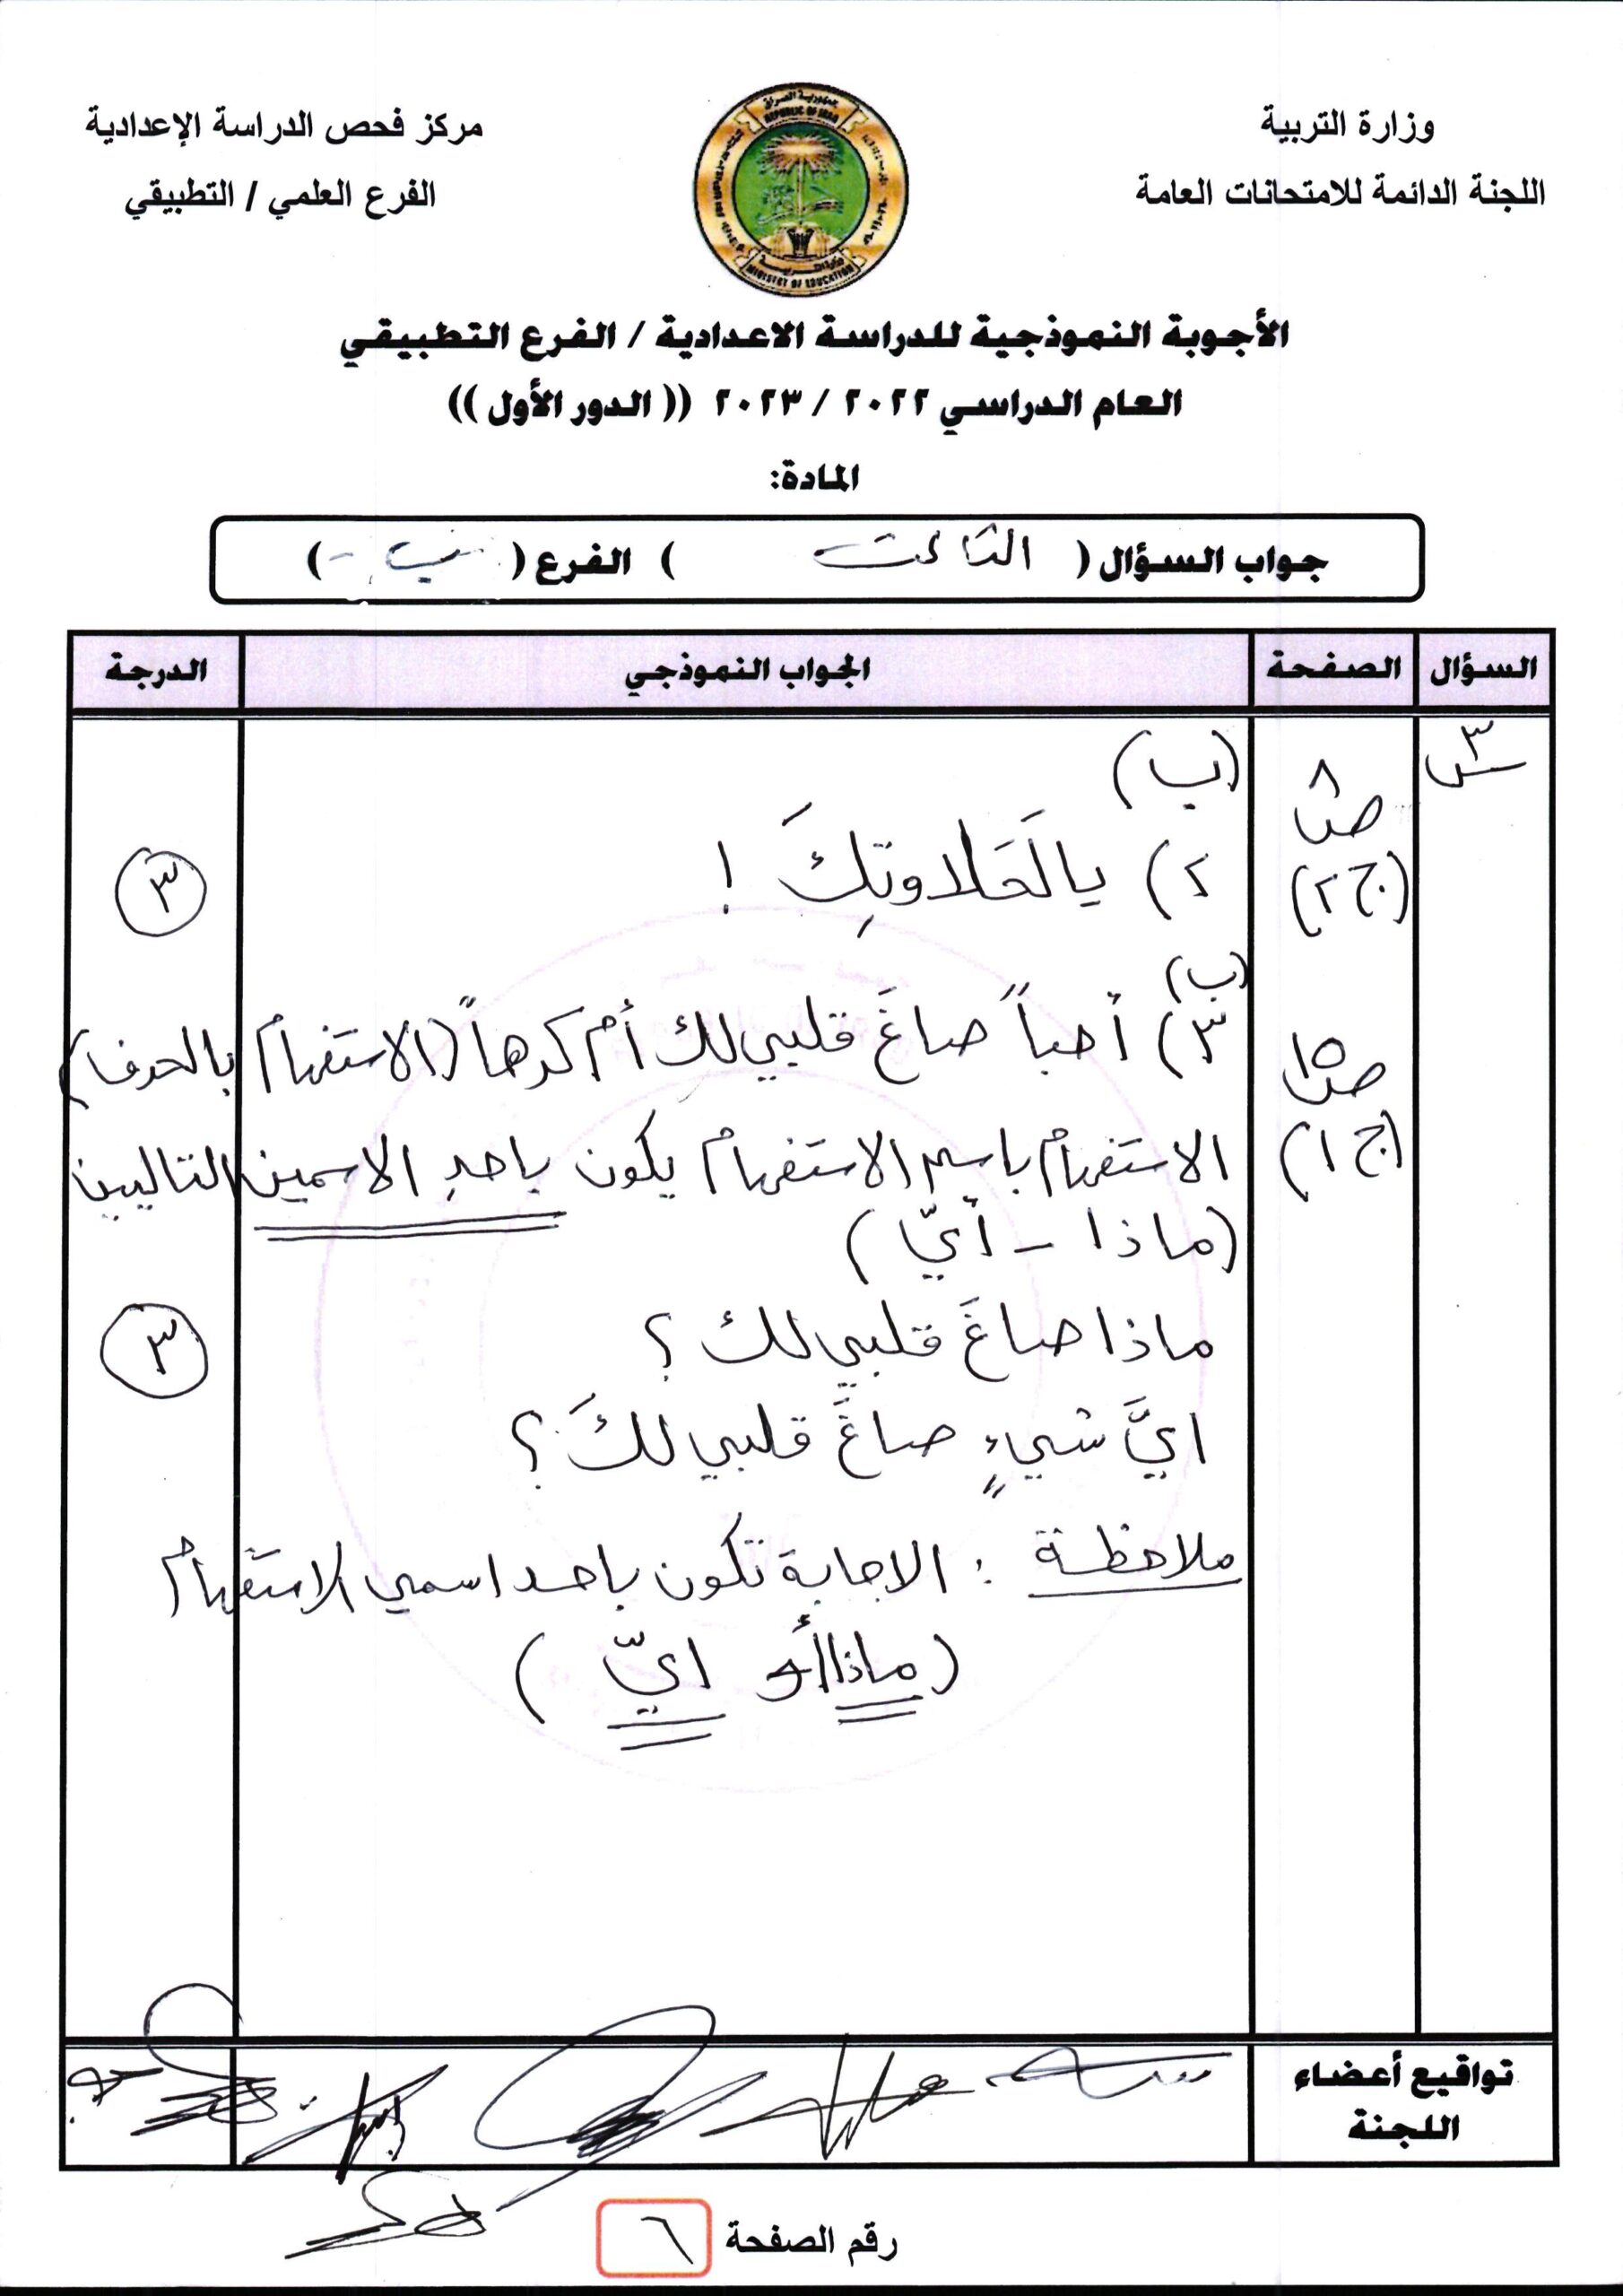 وزارة التربية
اللجنة الدائمة للامتحانات العامة
مركز فحص الدراسة الإعدادية
الفرع العلمي / التطبيقي
جمهورية العراق
REPUBLIC OF IRAQ
MINISTRY OF EDUCATION
الأجوبة النموذجية للدراسة الاعدادية / الفرع التطبيقي
العام الدراسي ٢٠٢٢ / ٢٠٢٣ (( الدور الأول ))
المادة:
جواب السؤال ( الثالث ) الفرع ( ب )
السؤال الصفحة الجواب النموذجي الدرجة
س٣
ص٨
(ج٢)
(ب)
٢) يالَحَلاوتِكَ !
٣
ص١٥
(ج١)
(ب)
٣) أحباً صاغَ قلبي لك أم كرهاً (الاستفهام بالحرف)
الاستفهام باسم الاستفهام يكون باحدِ الاسمين التاليين
(ماذا - أيّ)
ماذا صاغَ قلبي لك ؟
٣
ايَّ شيءٍ صاغَ قلبي لكَ ؟
ملاحظة : الاجابة تكون باحد اسمي الاستفهام
(ماذا أو ايّ)
تواقيع أعضاء
اللجنة
رقم الصفحة ٦